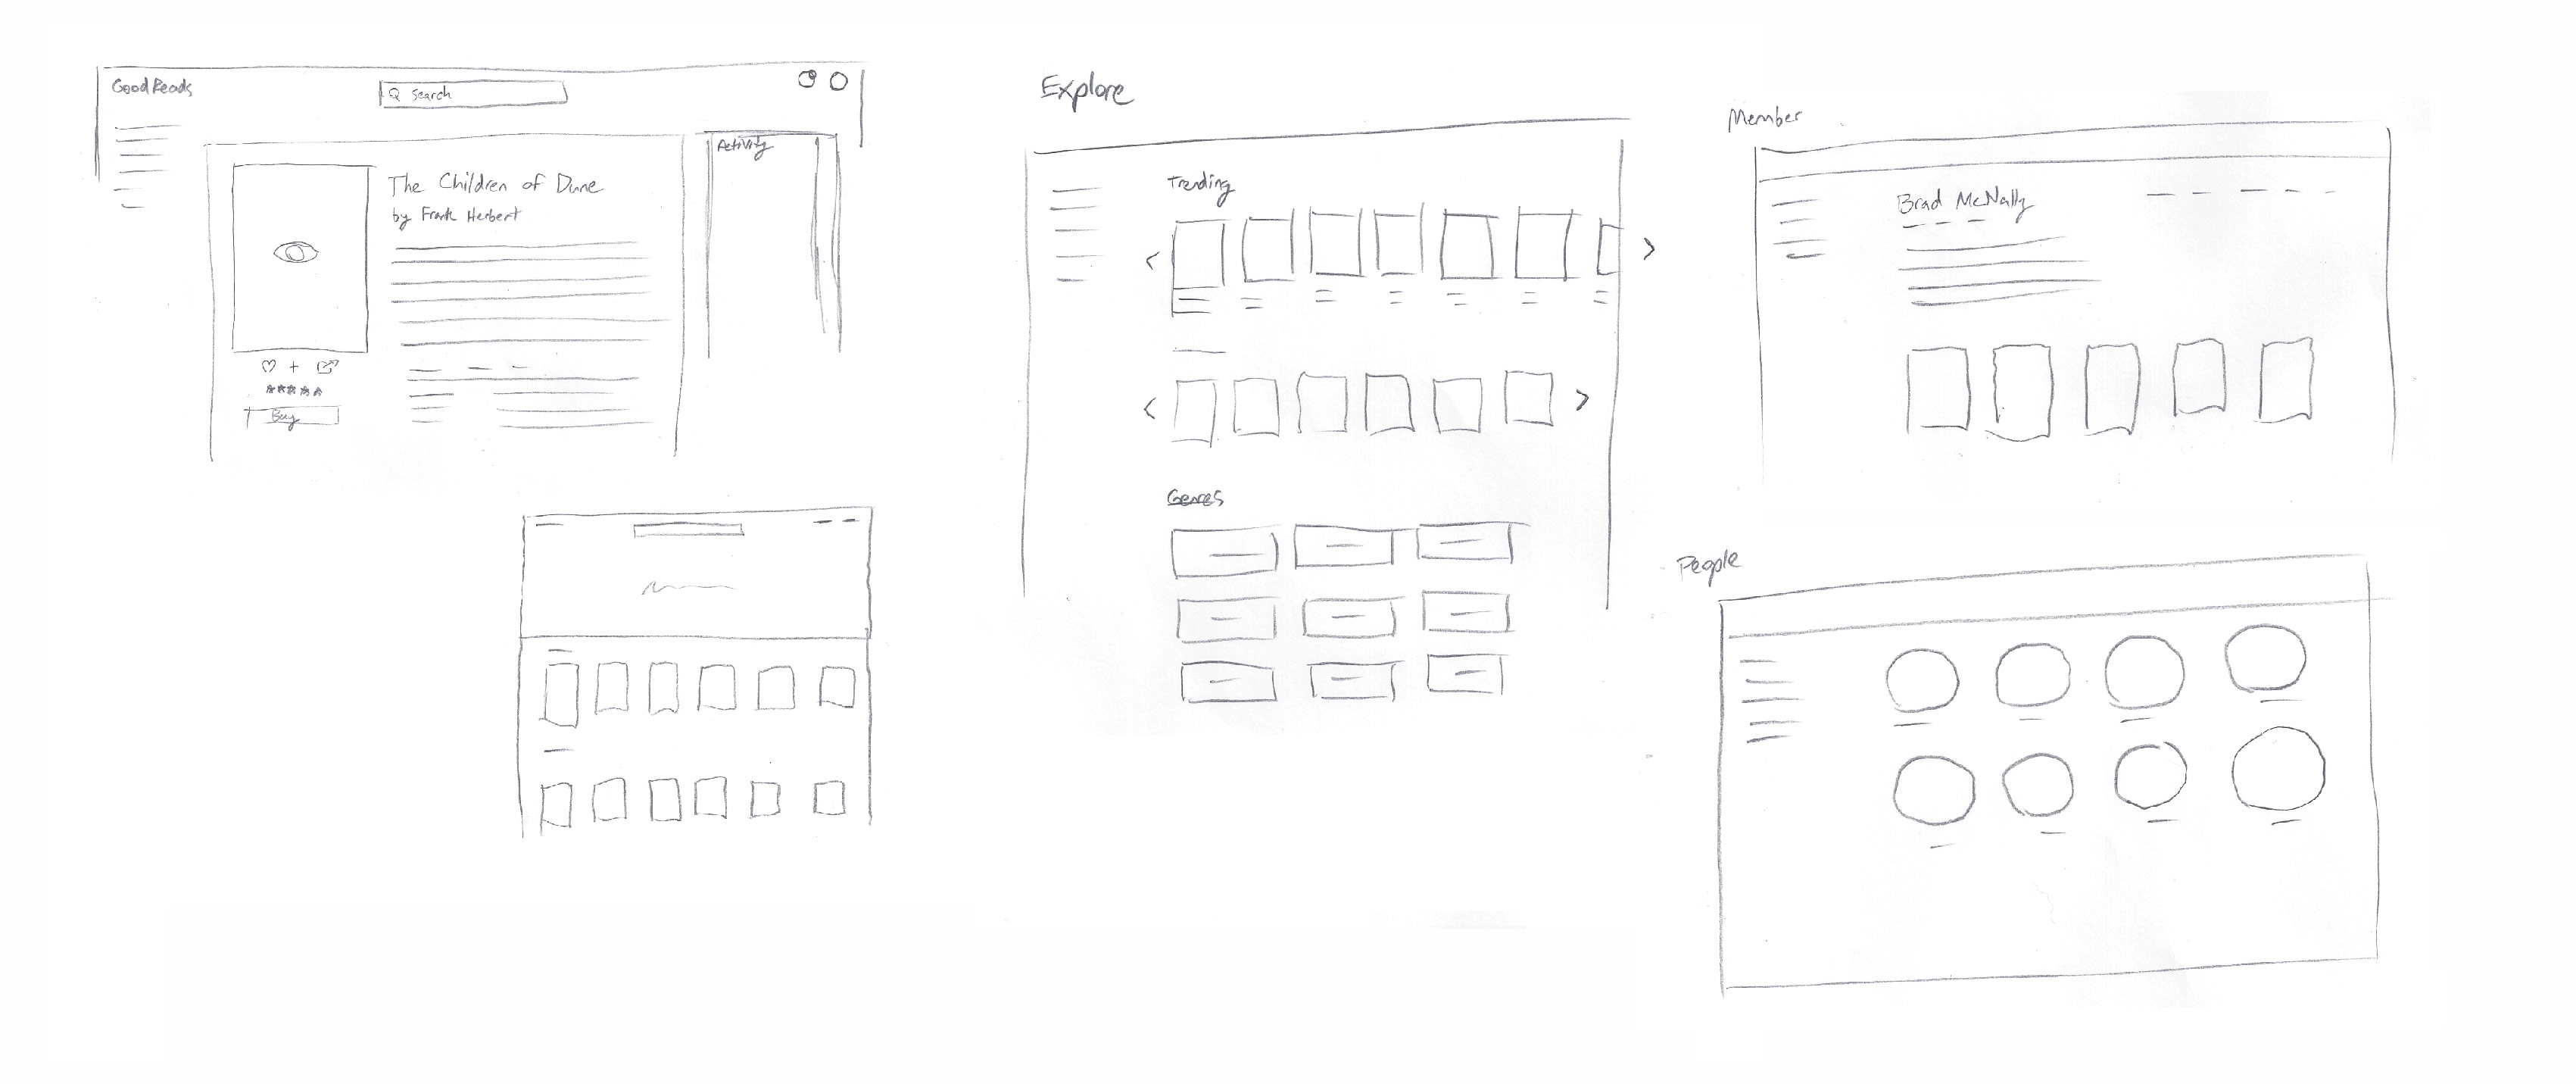 GoodReads
Search
Activity
The Children of Dune
by Frank Herbert
Buy
Explore
Trending
Genres
Member
Brad McNally
People